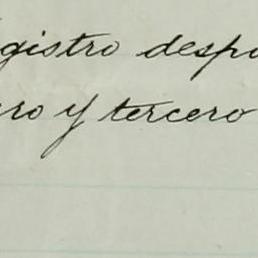 gistro despu
ro y tercero